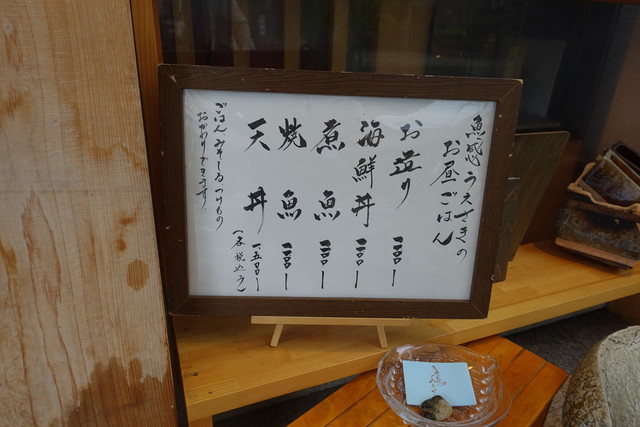 魚感 うえさきの
お昼ごはん
お造り 一二〇〇ー
海鮮丼 一二〇〇ー
煮魚 一二〇〇ー
焼魚 一二〇〇ー
天丼 一五〇〇ー
(各税込み)
ごはん みそしる つけもの
おかわりできます